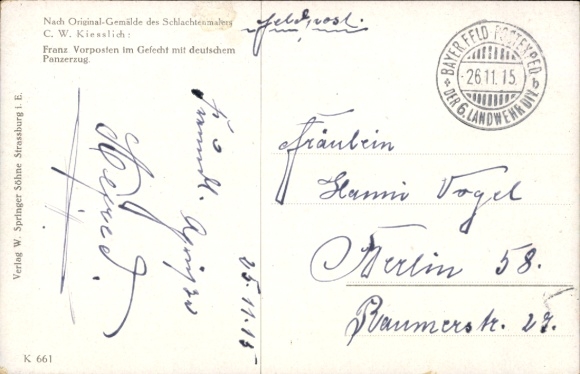 Nach Original-Gemälde des Schlachtenmalers
C. W. Kiesslich:
Franz Vorposten im Gefecht mit deutschem
Panzerzug.
Feldpost.
BAYER. FELD-POSTEXPED
26.11.15.
b
DER 6. LANDWEHR DIV.
Verlag W. Springer Söhne Strassburg i. E.
Alfred.
25.11.15
Fräulein
Hanni Vogel
Berlin 58.
Raumerstr. 27.
K 661